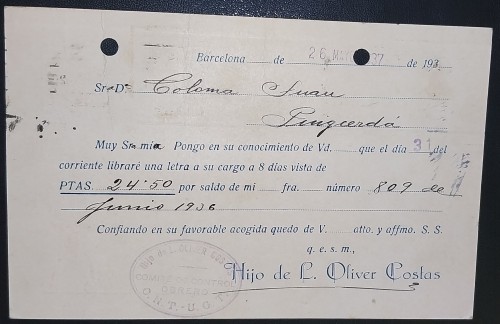 Barcelona de 26 M 37 de 193
Sr. Dª Coloma Juan
Puigcerdá
Muy Sr. mia Pongo en su conocimiento de Vd. que el día 31 del
corriente libraré una letra a su cargo a 8 días vista de
PTAS. 24'50 por saldo de mi fra. número 809 de
Junio 1936
Confiando en su favorable acogida quedo de V. atto. y affmo. S. S.
q. e. s. m.,
Hijo de L. Oliver Costas
OBRERO
C.N.T.-U.G.T.